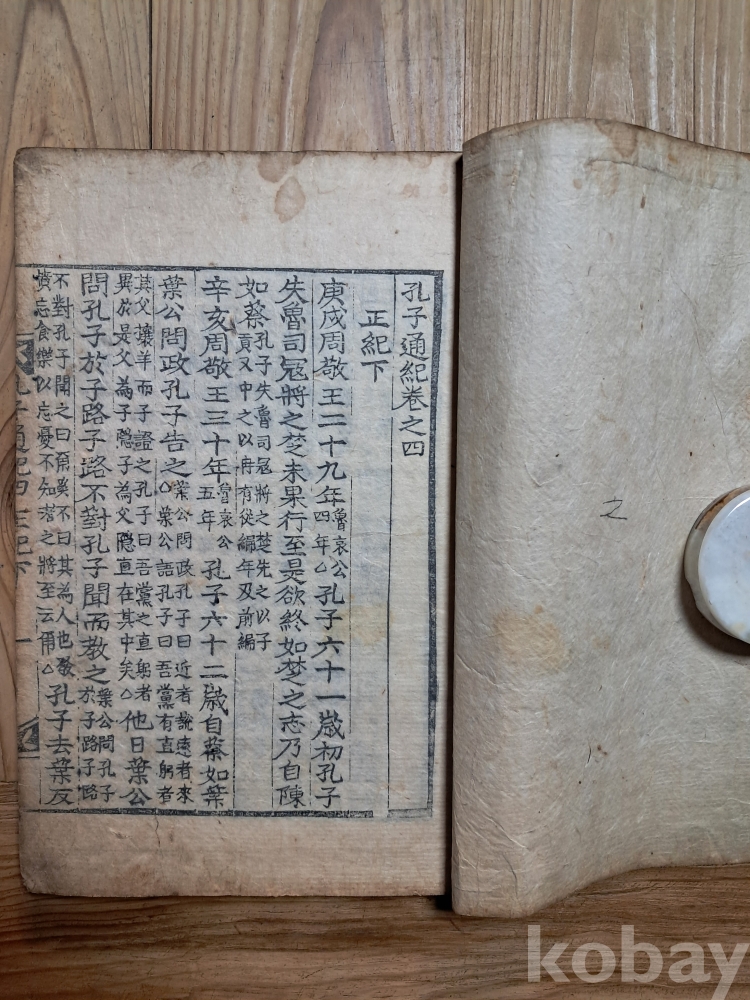 孔子通紀卷之四
正紀下
庚戌周敬王二十九年魯哀公四年△孔子六十一歲初孔子
失魯司寇將之楚未果行至是欲終如楚之志乃自陳
如蔡孔子失魯司寇將之楚先之以子貢又申之以冉有從編年及前編
辛亥周敬王三十年魯哀公五年孔子六十二歲自蔡如葉
葉公問政孔子告之葉公問政孔子曰近者說遠者來△葉公語孔子曰吾黨有直躬者
其父攘羊而子證之孔子曰吾黨之直躬者異於是父為子隱子為父隱直在其中矣△他日葉公
問孔子於子路子路不對孔子聞而教之葉公問孔子於子路子路
不對孔子聞之曰爾奚不曰其為人也發憤忘食樂以忘憂不知老之將至云爾△孔子去葉反
孔子通紀四 正紀下 一
之
kobay